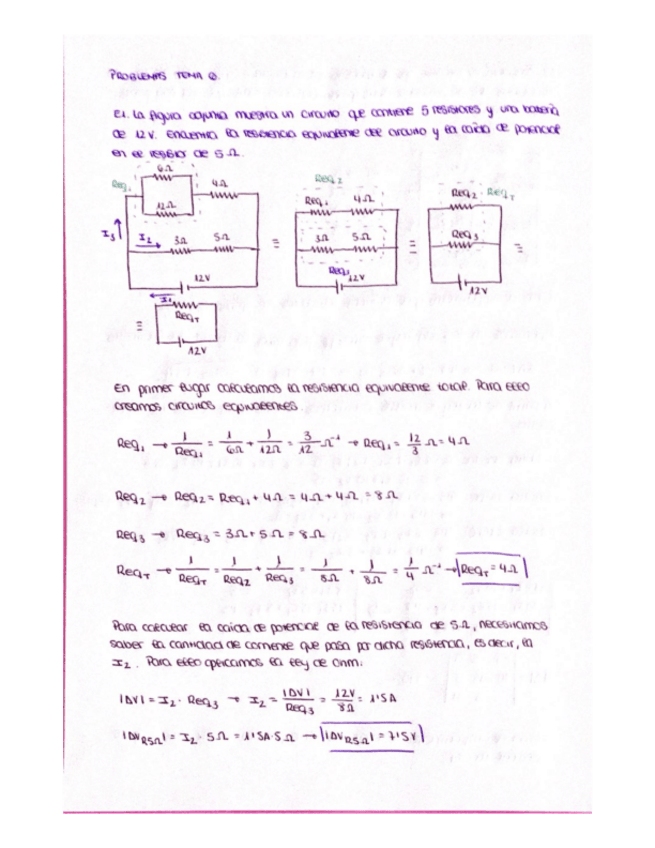 PROBLEMAS TEMA 6.
E1. La figura adjunta muestra un circuito que contiene 5 resistores y una batería
de 12 V. Encuentra la resistencia equivalente del circuito y la caída de potencial
en el resistor de 5 Ω.
6Ω
Req1
4Ω
12Ω
I3
I2
3Ω
5Ω
12V
≡
Req2
Req1
4Ω
3Ω
5Ω
Req3
12V
≡
Req2
ReqT
Req3
12V
≡
≡
I1
ReqT
12V
En primer lugar calculamos la resistencia equivalente total. Para ello
creamos circuitos equivalentes
Req1 → 1/Req1 = 1/6Ω + 1/12Ω = 3/12 Ω⁻¹ → Req1 = 12/3 Ω = 4Ω
Req2 → Req2 = Req1 + 4Ω = 4Ω + 4Ω = 8Ω
Req3 → Req3 = 3Ω + 5Ω = 8Ω
ReqT → 1/ReqT = 1/Req2 + 1/Req3 = 1/8Ω + 1/8Ω = 1/4 Ω⁻¹ → ReqT = 4Ω
Para calcular la caída de potencial de la resistencia de 5Ω, necesitamos
saber la cantidad de corriente que pasa por dicha resistencia, es decir, la
I2. Para ello aplicamos la ley de Ohm:
|ΔV| = I2 · Req3 → I2 = |ΔV|/Req3 = 12V/8Ω = 1'5A
|ΔVR5Ω| = I2 · 5Ω = 1'5A·5Ω → |ΔVR5Ω| = 7'5V